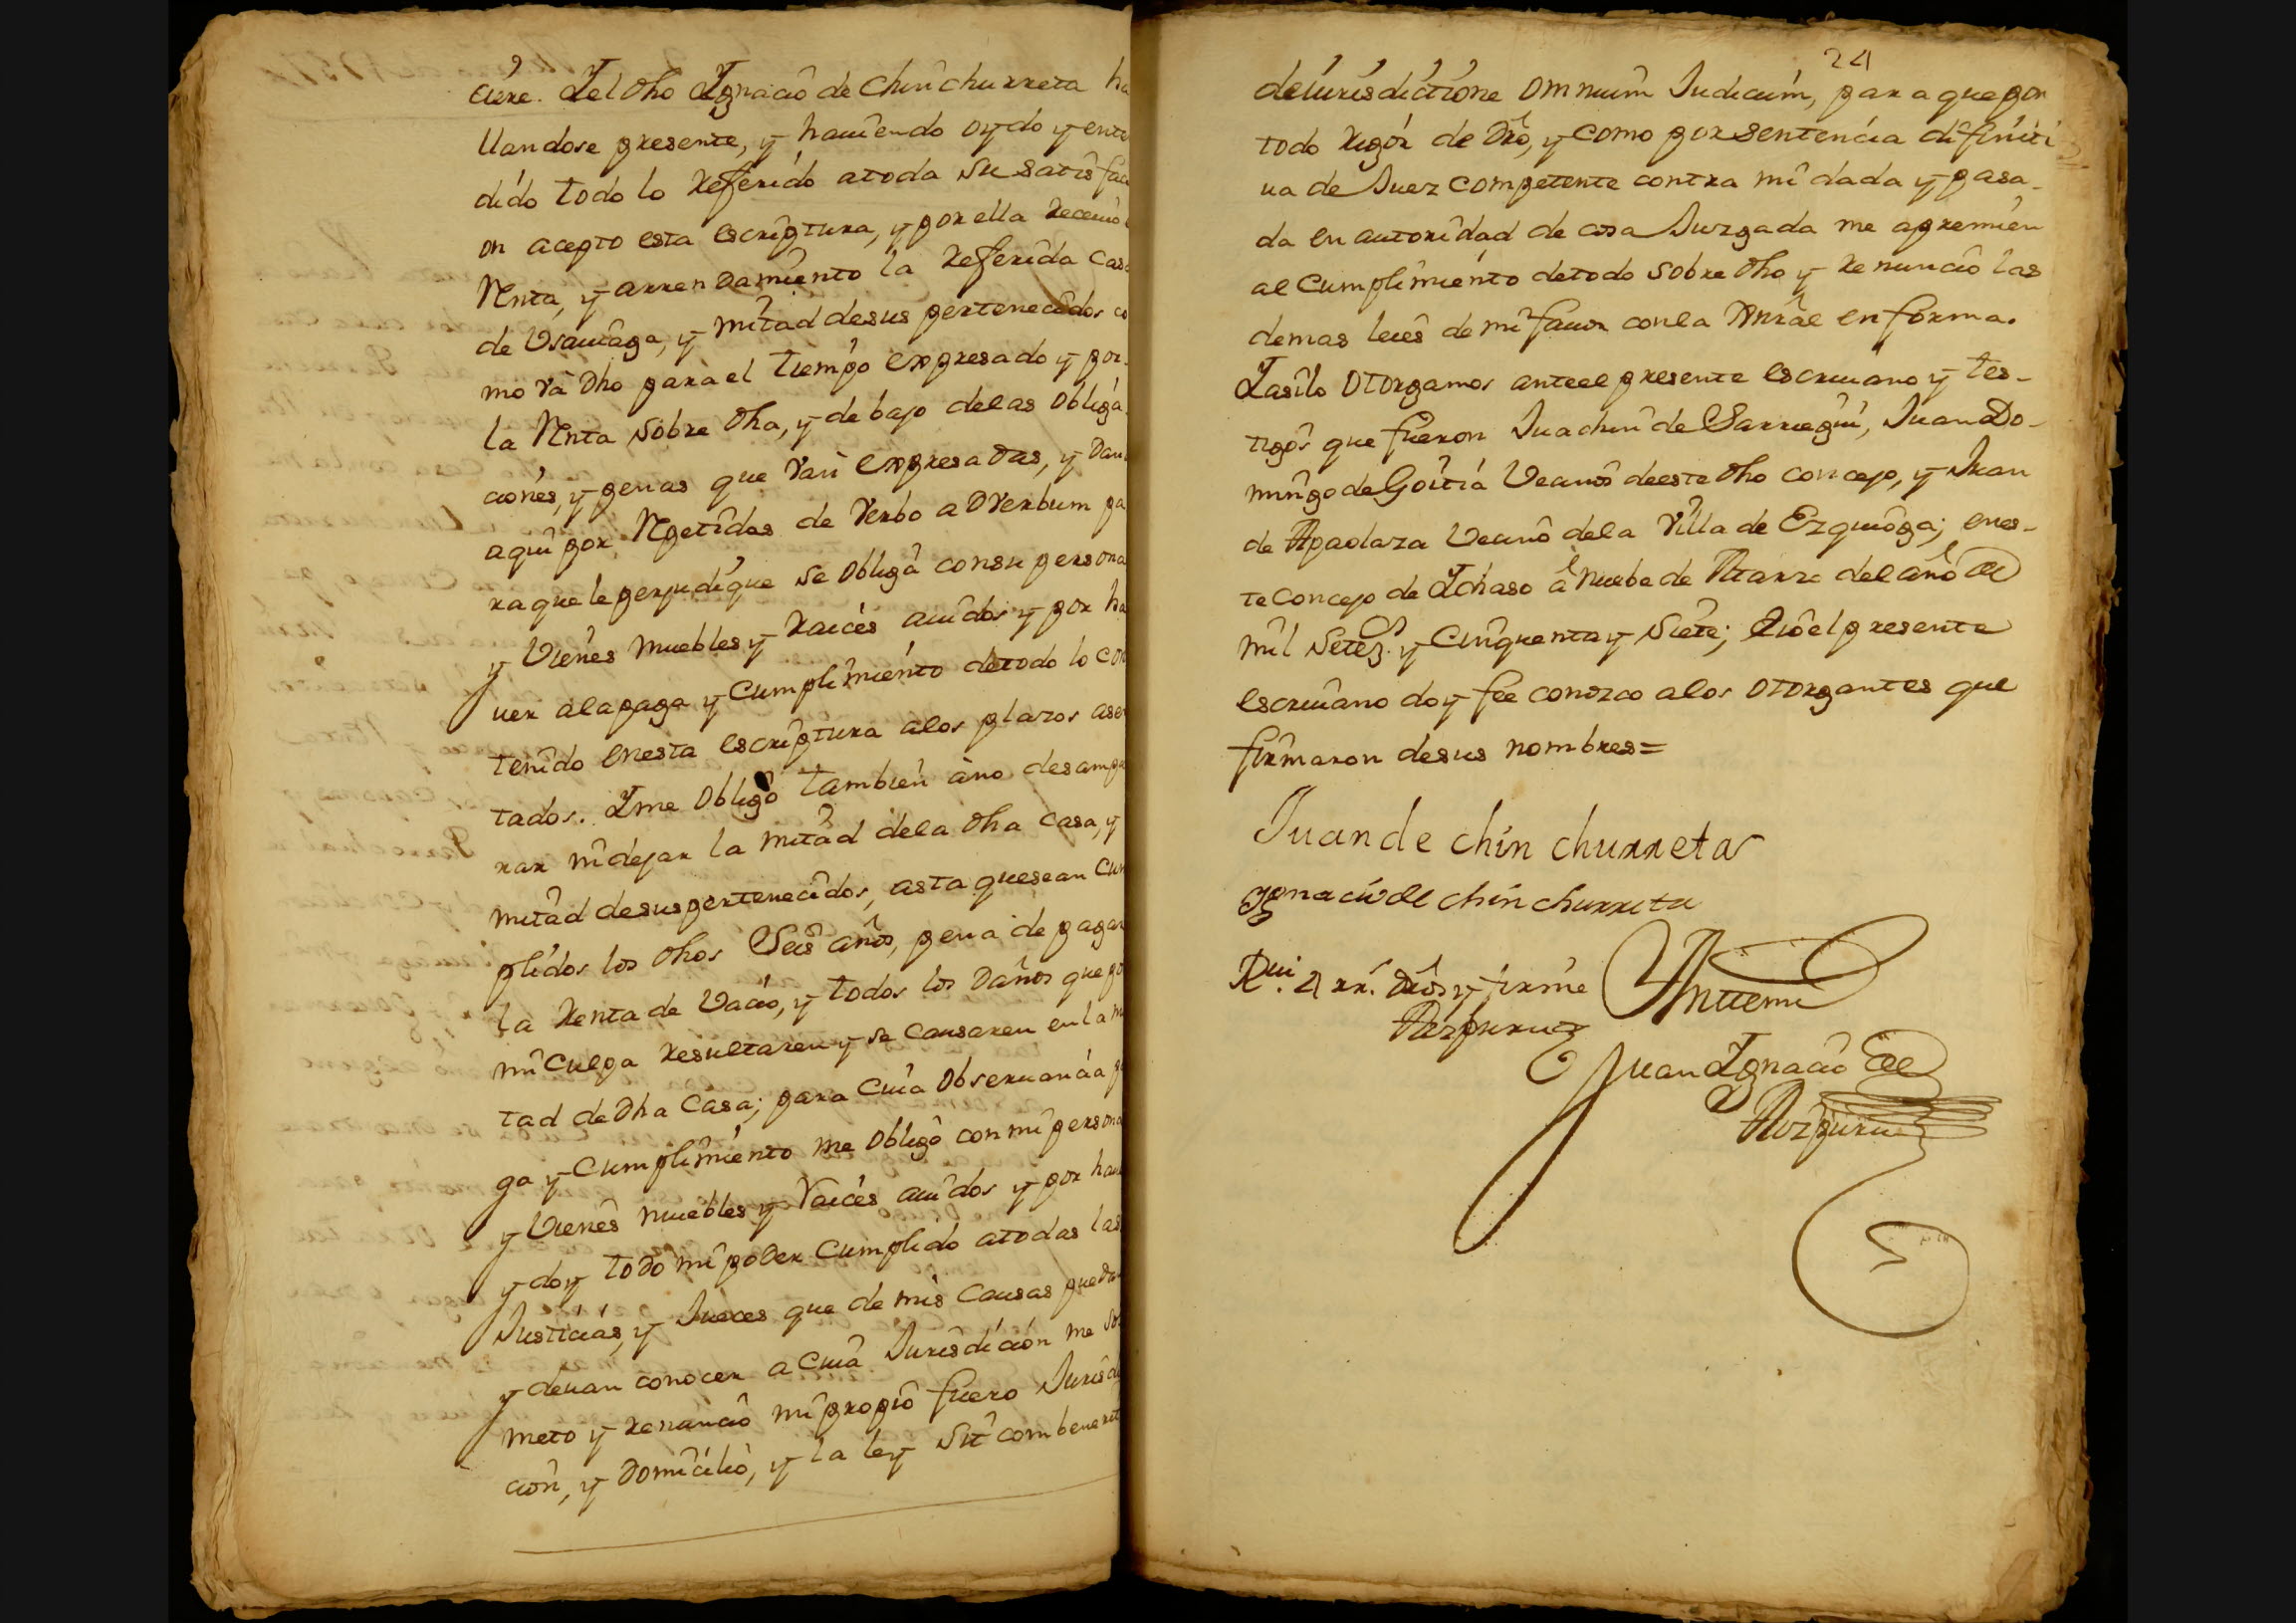 ciere. Y el dho Ygnacio de chinchurreta ha
llandose presente, y hauiendo oydo y enten
didо todo lo referido a toda su satisfaci
on acepto esta escriptura, y por ella reciuio en
Renta, y arrendamiento la referida Casa
de Vsauiaga, y mitad de sus pertenecidos co
mo va dho para el tiempo expresado y por
la Renta sobre dha, y debajo de las obliga
ciones, y penas que van expresadas, y Dan
aqui por Repetidas de Verbo ad Verbum pa
ra que le perjudique se obliga con su persona
y Vienes muebles y raices auidos y por ha
uer a la paga y cumplimiento de todo lo con
tenido en esta escriptura a los plazos asen
tados. Y me obligo tambien a no desampa
rar ni dejar la mitad de la dha casa, y
mitad de sus pertenecidos, asta que sean cum
plidos los dhos Seis años, pena de pagar
la renta de Vacio, y todos los Daños que por
mi culpa resultaren y se causaren en la mi
tad de dha Casa; para cuia obseruancia pa
ga y Cumplimiento me obligo con mi persona
y Vienes muebles y Raices auidos y por hauer
y doy todo mi poder cumplido a todas las
Justicias, y Jueces que de mis Causas puedan
y deuan conocer a cuia Jurisdicion me so
meto y renuncio mi propio fuero Jurisdi
cion, y domicilio, y la ley Sit combenerit
24
de iurisdictione omnium Judicum, para que por
todo rigor de Dro, y como por sentencia difiniti
ua de Juez competente contra mi dada y pasa-
da en autoridad de cosa Juzgada me apremien
al cumplimiento de todo sobre dho y renuncio las
demas leies de mi fauor con la Genral en forma.
Y asilo otorgamos ante el presente escriuano y tes-
tigos que fueron Juachin de Sarriegui, Juan Do-
mingo de Goitia Vecinos de este dho concejo, y Juan
de Apaolaza Vecino de la Villa de Ezquioga; en es-
te Concejo de Ychaso a Nuebe de Marzo del año de
mil setez.s y Cinquenta y Siete; E io el presente
escriuano doy fee conozco a los otorgantes que
firmaron de sus nombres=
Juan de chin churreta
Ygnacio de chin churreta
Rui. 4 rr. Dros y firme
Aizpuru
Anttemi
Juan Ygnacio de
Aizpuru